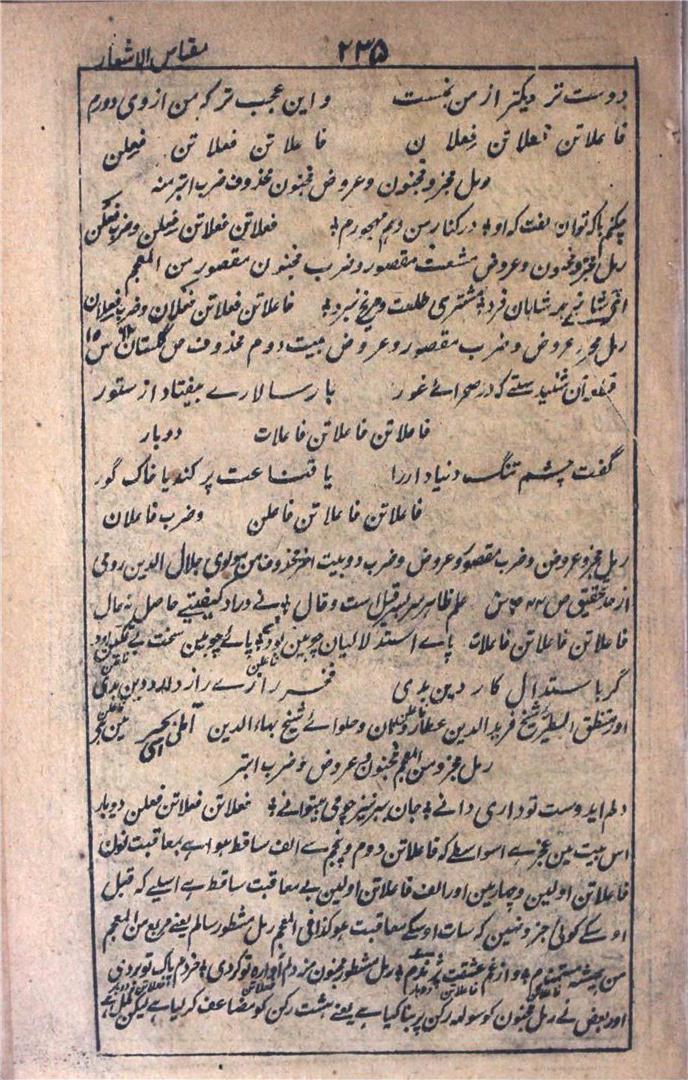 ۲۳۵ مقاس الاشعار
دوست تر دیکتر از من بمنست واین عجب تر که من ازوی دورم
فاعلاتن فعلاتن فعلان فاعلاتن فعلاتن فعلن
رمل مجزو مخبون وعروض مخبون محذوف ضرب ابتر منه
چکنم باکه توان گفت که او در کنار من ومن مهجورم فعلاتن فعلاتن فعلن وضرب فعلن
رمل مجزو مخبون وعروض مشعث مقصور وضرب مخبون مقصور من المعجم
بر شاهان فرد مشتری طلعت ومریخ نبرد فاعلاتن فعلاتن فعلان وضرب فعلان
رمل مجزو عروض وضرب مقصور وعروض بیت دوم محذوف من گلستان س
قطعه آن شنیدستی که در صحرائے غور بار سالارے بیفتاد از ستور
فاعلاتن فاعلاتن فاعلات دوبار
گفت چشم تنگ دنیا دار را یا قناعت پر کند یا خاک گور
فاعلاتن فاعلاتن فاعلن وضرب فاعلان
رمل مجزو عروض وضرب مقصور وعروض وضرب دو بیت اخر محذوف من مولوی جلال الدین رومی
از حد تحقیق ص ۴۴ ش علم ظاهر سر بسر قیل است وقال نے درو کیفیتے حاصل نه حال
فاعلاتن فاعلاتن فاعلات پاے استدلالیان چوبین بود پائے چوبین سخت بے تمکین بود
گر باستدلال کار دین بدی فخر رازے راز دار دین بدی
اور منطق الطیر شیخ فرید الدین عطار وحلوائے شیخ بهاء الدین آملی
رمل مجزو من المعجم مخبون وعروض وضرب ابتر
دلم ایدوست تو داری دانے جان ببر نیز چو می بتوانے فعلاتن فعلاتن فعلن دوبار
اس بیت مین عجز ہے اسواسطے کہ فاعلاتن دوم وپنجم سے الف ساقط ہوا ہے بمعاقبت نون
فاعلاتن اولین وچہارمین اور الف فاعلاتن اولین بے معاقبت ساقط ہے اسلیے کہ قبل
اوسکے کوئی جزو نہین کہ سات اوسکے معاقبت ہو کذا فی المعجم رمل مشطور سالم یعنے مربع من المعجم
من ہمیشہ مستمندم واز غم عشقت رمل مشطور مخبون منہ دلم آوارہ تو کردی خردم پاک تو بردی
اور بعض نے رمل مخبون کو سولہ رکن پر بنا کیا ہے یعنے ہشت رکن کو مضاعف کر لیا ہے لیکن